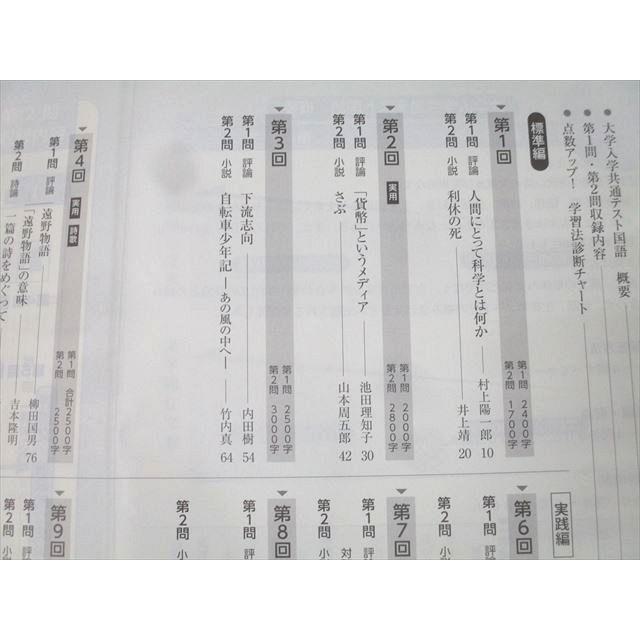 ● 大学入学共通テスト国語 概要
● 第1問・第2問収録内容
● 点数アップ! 学習法診断チャート
標準編
第1回 第1問 2400字 第2問 1700字
第1問 評論 人間にとって科学とは何か 村上陽一郎 10
第2問 小説 利休の死 井上靖 20
第2回 実用 第1問 2000字 第2問 2800字
第1問 評論 「貨幣」というメディア 池田理知子 30
第2問 小説 さぶ 山本周五郎 42
第3回 第1問 2500字 第2問 3000字
第1問 評論 下流志向 内田樹 54
第2問 小説 自転車少年記―あの風の中へ― 竹内真 64
第4回 実用 詩歌 第1問 合計2500字 第2問 2500字
第1問 評論 遠野物語
「遠野物語」の意味 柳田国男 76
第2問 詩論 一篇の詩をめぐって 吉本隆明
実践編
第6回
第1問 評
第2問 小
第7回
第1問 評
第2問 小
対
第8回
第1問 評
第2問 小
第9回
第1問 評
第2問 小